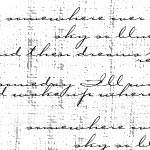 somewhere over
sky so blu
nd the dreams
re
someday I'll
d wake up where
somewhere ov
sky so blu